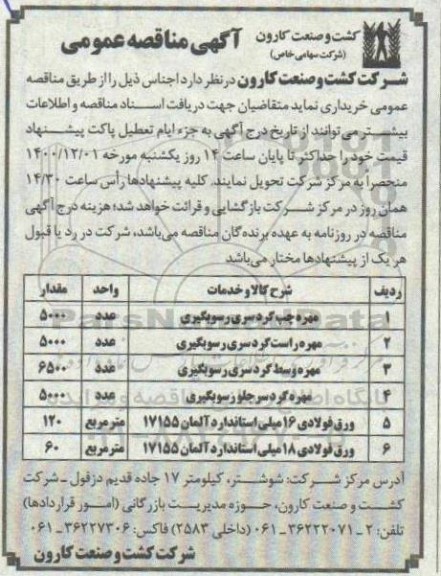 کشت و صنعت کارون
(شرکت سهامی خاص)
آگهی مناقصه عمومی
شرکت کشت و صنعت کارون در نظر دارد اجناس ذیل را از طریق مناقصه
عمومی خریداری نماید متقاضیان جهت دریافت اسناد مناقصه و اطلاعات
بیشتر می توانند از تاریخ درج آگهی به جزء ایام تعطیل پاکت پیشنهاد
قیمت خود را حداکثر تا پایان ساعت ۱۴ روز یکشنبه مورخه ۱۴۰۰/۱۲/۰۱
منحصراً به مرکز شرکت تحویل نمایند. کلیه پیشنهادها رأس ساعت ۱۴/۳۰
همان روز در مرکز شرکت بازگشایی و قرائت خواهد شد؛ هزینه درج آگهی
مناقصه در روزنامه به عهده برنده گان مناقصه می‌باشد، شرکت در رد یا قبول
هر یک از پیشنهادها مختار می باشد
ردیف شرح کالا و خدمات واحد مقدار
۱ مهره چپ گرد سری رسوبگیری عدد ۵۰۰۰
۲ مهره راست گرد سری رسوبگیری عدد ۵۰۰۰
۳ مهره وسط گرد سری رسوبگیری عدد ۶۵۰۰
۴ مهره گرد سر جلو رسوبگیری عدد ۵۰۰۰
۵ ورق فولادی ۱۶ میلی استاندارد آلمان ۱۷۱۵۵ مترمربع ۱۲۰
۶ ورق فولادی ۱۸ میلی استاندارد آلمان ۱۷۱۵۵ مترمربع ۶۰
آدرس مرکز شرکت: شوشتر، کیلومتر ۱۷ جاده قدیم دزفول ـ شرکت
کشت و صنعت کارون، حوزه مدیریت بازرگانی (امور قراردادها)
تلفن: ۲ ـ ۳۶۲۲۲۰۷۱ ـ ۰۶۱ (داخلی ۲۵۸۳) فاکس: ۳۶۲۲۷۳۰۶ ـ ۰۶۱
شرکت کشت و صنعت کارون